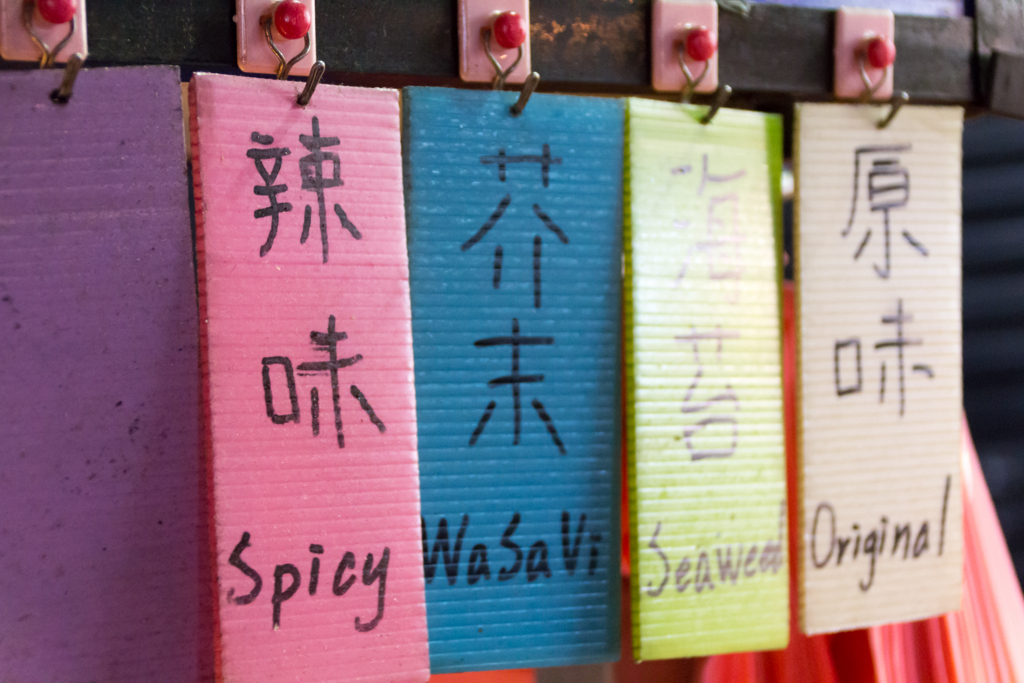 辣味
Spicy
芥末
WaSaVi
海苔
Seaweed
原味
Original